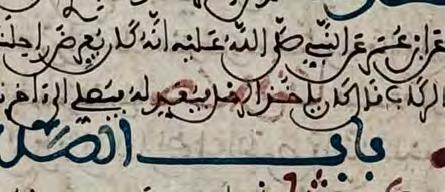 عن ابن عمر عن النبي صلى الله عليه انه كان يعرض راحلته
الركاب قال كان ياخذ الرحل فيعدله فيصلي الى
باب